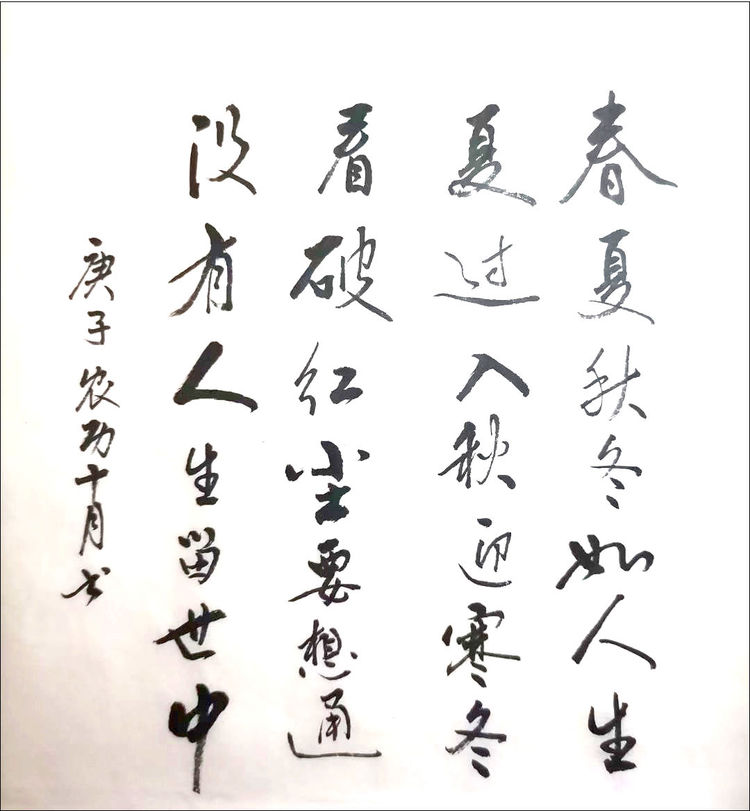 春夏秋冬如人生
夏过入秋迎寒冬
看破红尘要想通
没有人生留世中
庚子农历十月书